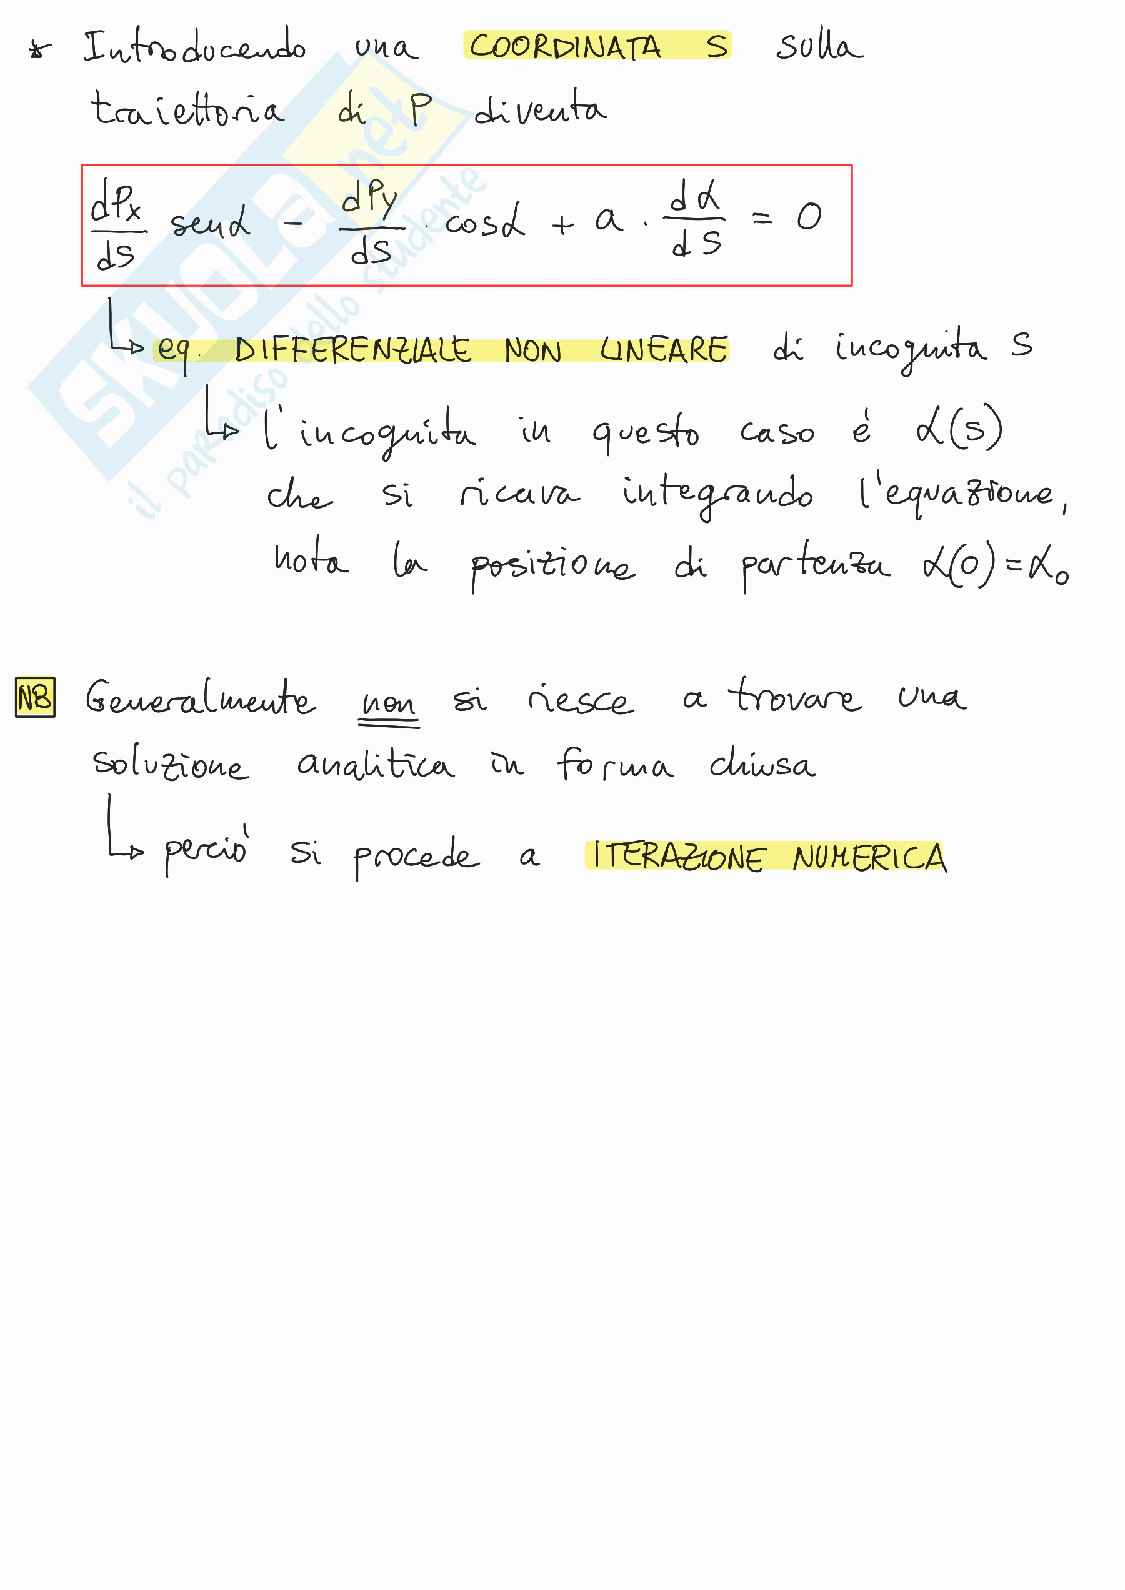 * Introducendo una COORDINATA S sulla
traiettoria di P diventa
dPx/ds senα - dPy/ds · cosα + a · dα/ds = 0
↳ eq. DIFFERENZIALE NON LINEARE di incognita S
↳ l'incognita in questo caso è α(s)
che si ricava integrando l'equazione,
nota la posizione di partenza α(0)=α₀
NB Generalmente non si riesce a trovare una
soluzione analitica in forma chiusa
↳ perciò si procede a ITERAZIONE NUMERICA
SKUOLA.net
il paradiso dello studente